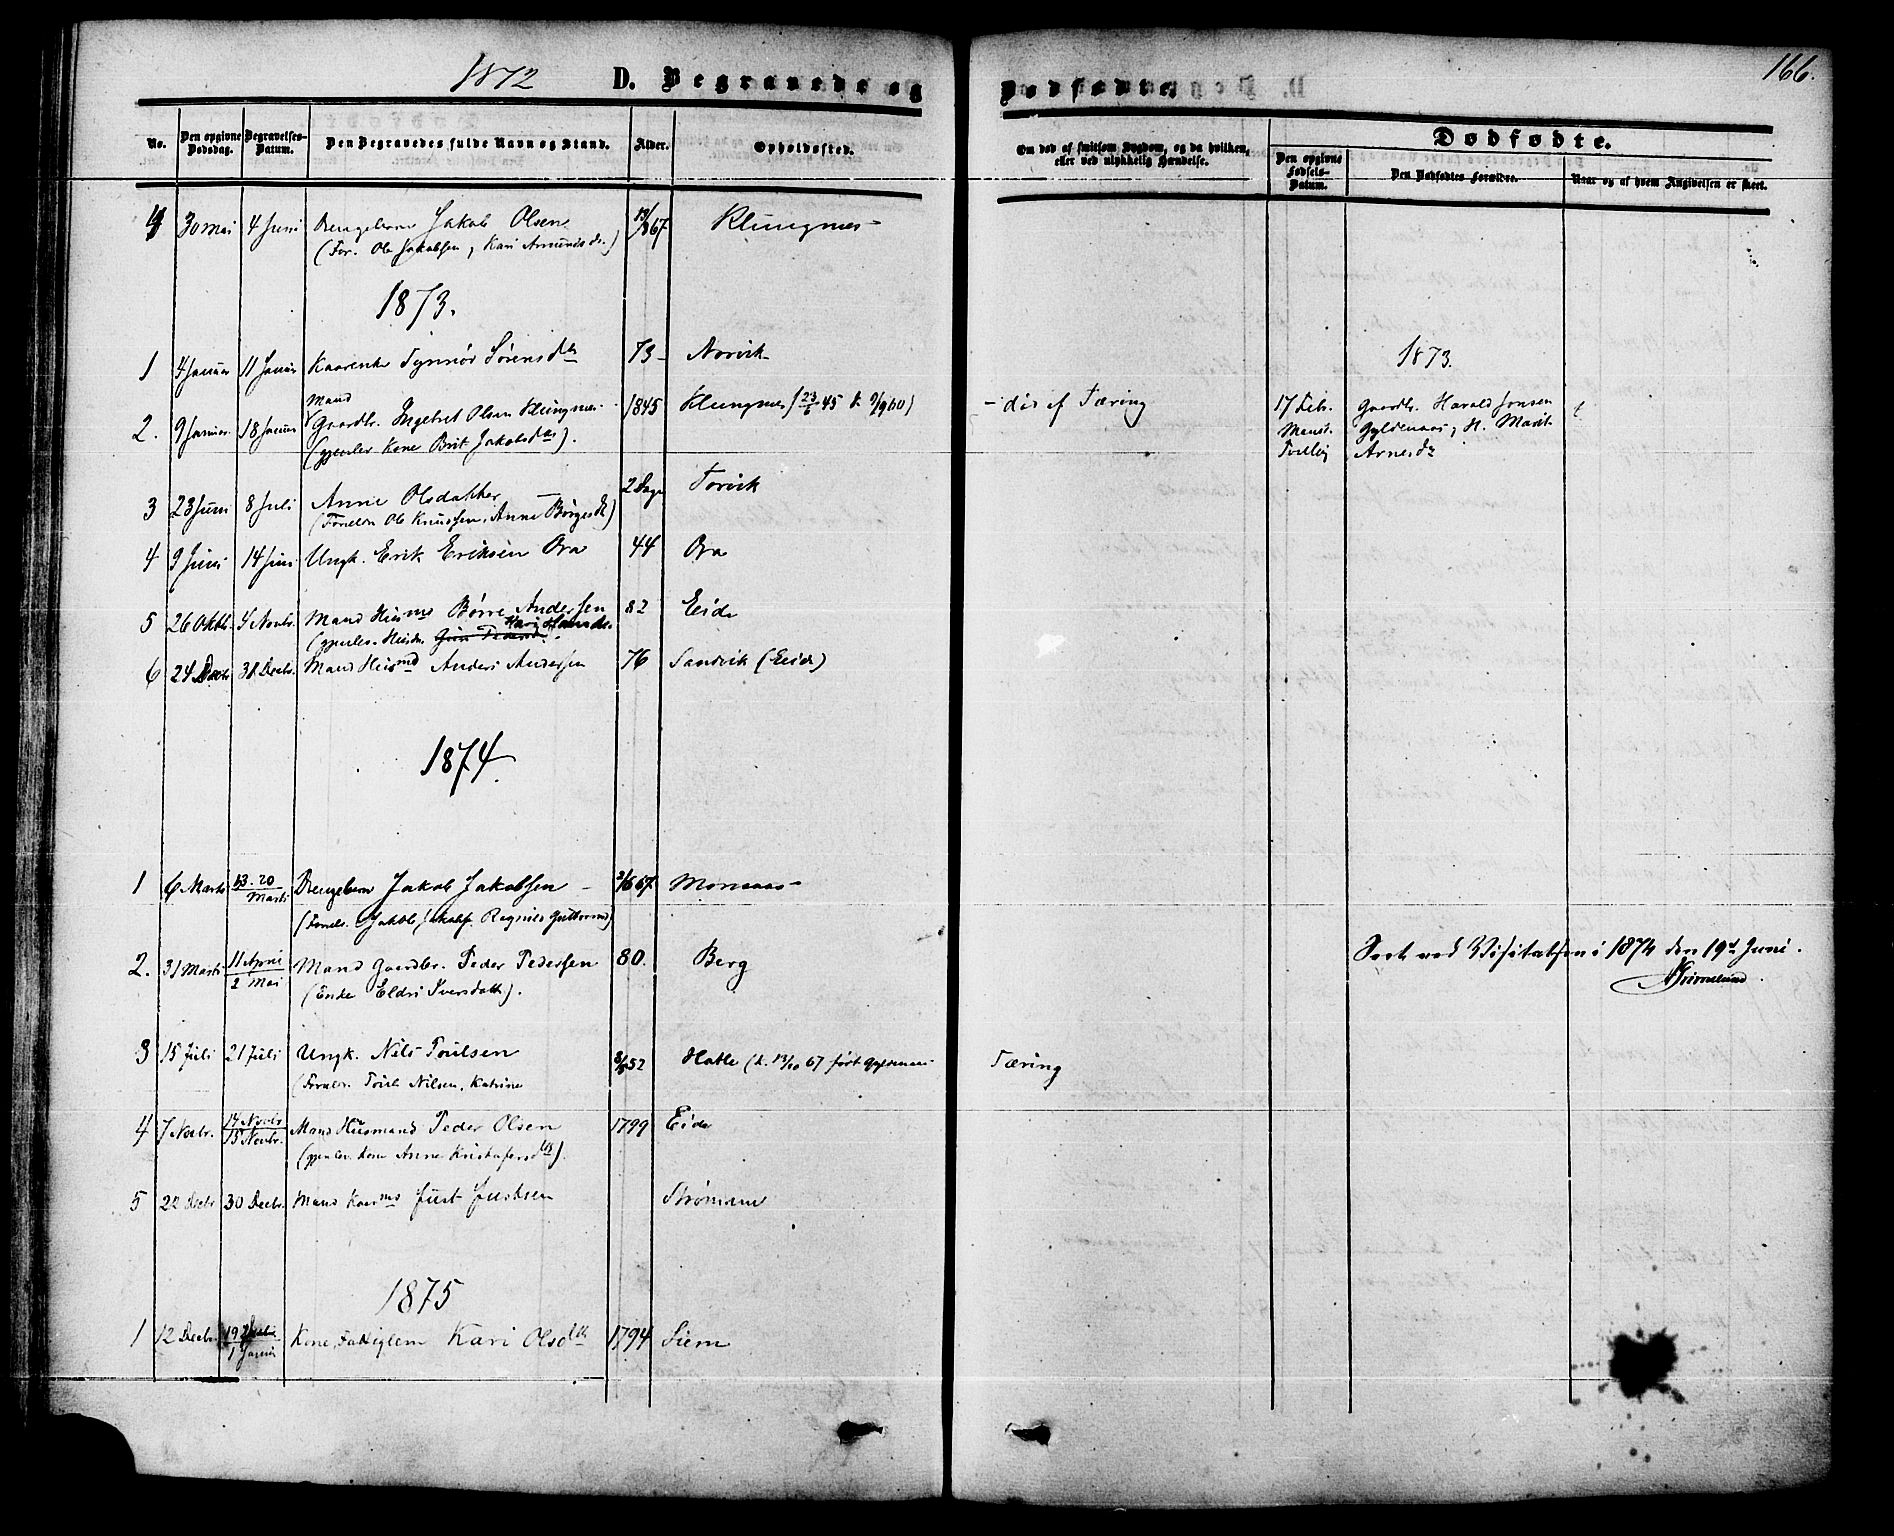 1872 D. Begravede og
Dødfødte.
166.
No.
Den opgivne Dødsdag.
Begravelses-Datum.
Den Begravedes fulde Navn og Stand.
Alder.
Opholdssted.
Om død af smitsom Sygdom, og da hvilken, eller ved ulykkelig Hændelse.
Dødfødte.
Den opgivne Fødsels-Datum.
Den Dødfødtes Forældre.
Naar og af hvem Angivelsen er skeet.
4 30 Mai 4 Juni Drengebarn Jakob Olsen 67 Klungnes
(For. Ole Jakobsen, Kari Amundsdr.)
1873.
1 4 Januar 11 Januar Kaarenke Synnøv Sørensdtr 73 Norvik
1873.
Mand
2. 9 Januar 18 Januar Gaardbr. Ingebret Olsen Klungnes 1845 Klungnes ( 45 k. 60) - død af Tæring
(gjenlev. Kone Brit Jakobsdtr).
17 Febr. Gaardbr. Harald Jonsen
Gyldenaas, H. Marit
Tvilling Arnesdr
3 23 Juni 8 Juli Anne Olsdatter 2 Dage Torvik
(Foreldre Ole Knudsen, Anne Børgesdr)
4 9 Juni 14 Juni Ungk. Erik Eriksen Ora 44 Ora
5 26 Oktbr. 4 Novbr. Mand Husmd Børre Andersen 82 Eide
Kari Hansdr.
(gjenlev. Hustru
6 24 Decbr 31 Decbr. Mand Husmd Anders Andersen 76 Sandvik (Eide)
1874
1 6 Marts 13. 20 Marts Drengebarn Jakob Jakobsen 2/6 67. Monsaas
(Foreldr. Jakob Jakobs. Ragnild Guttormsd)
2. 31 Marts 11 April 2 Mai Mand Gaardbr. Peder Pedersen 80. Berg
(Enke Eldri Iversdatt).
Seet ved Visitatsen i 1874 den 19d Juni.
Grimelund
3 15 Juli 21 Juli Ungk. Nils Poulsen 52 Hatle (k. 13/10 67 ført
Tæring
(Foreldr. Poul Nilsen, Katrine
4 7 Novbr. 14 Novbr 15 Novbr. Mand Husmand Peder Olsen 1799 Eide
(gjenlev. Kone Anne Kristofersdtr).
5 22 Decbr 30 Decbr. Mand Just Justsen
1875
1 12 Decbr. 19 1 Januar Kone, Fattiglem Kari Olsdtr 1794 Siem